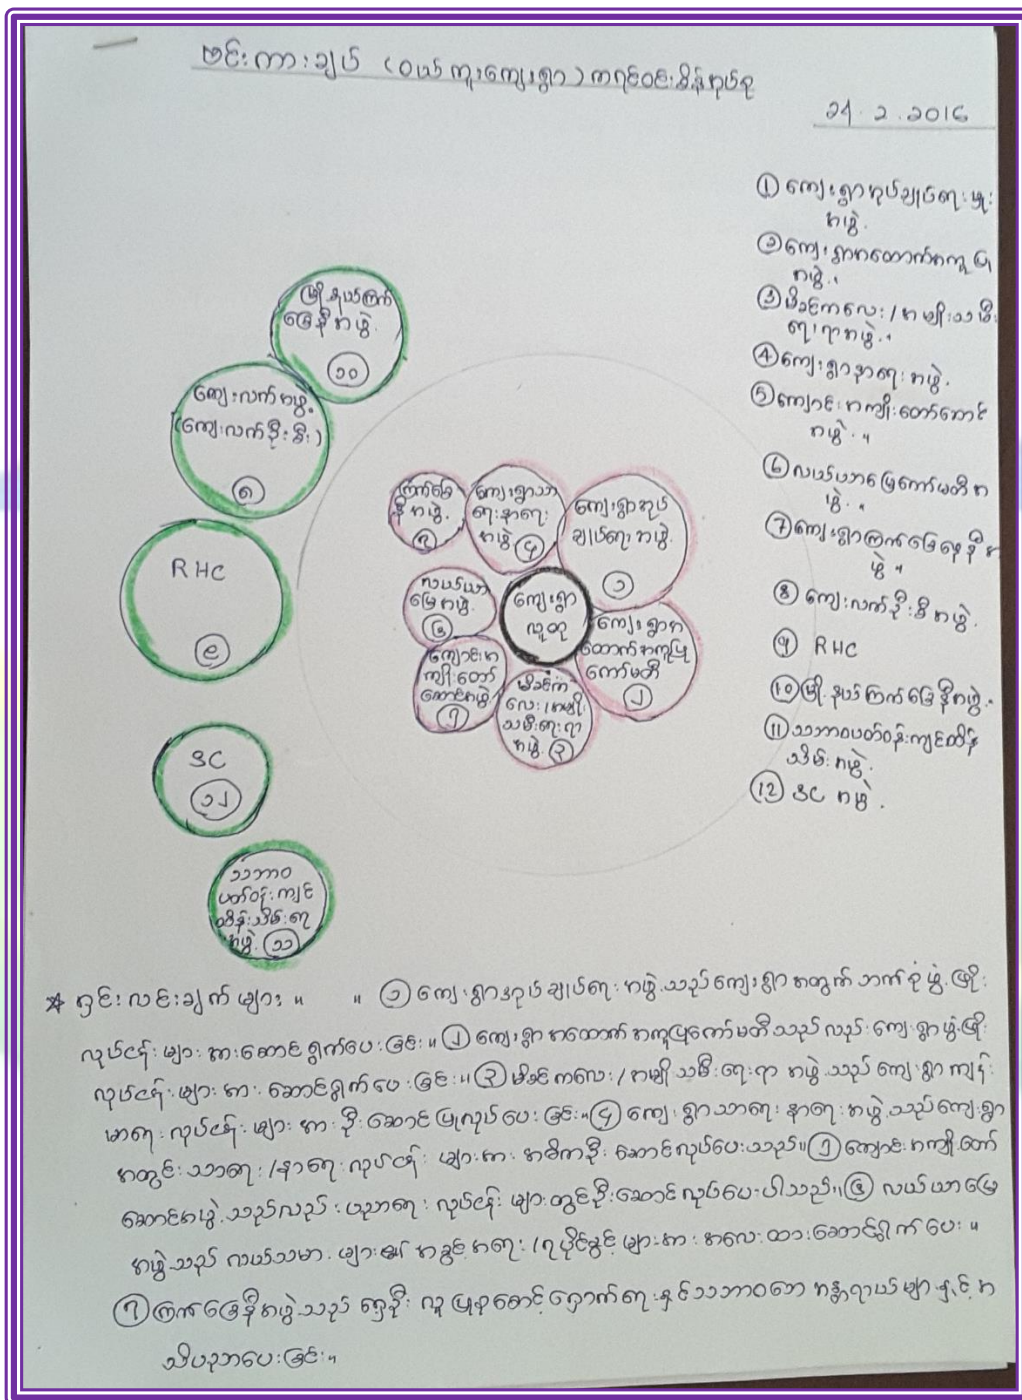 ဗင်းကားချပ် (ဝယ်ကူးကျေးရွာ) ကရင်ဝင်းစိန်အုပ်စု
24.2.2016
① ကျေးရွာအုပ်ချုပ်ရေးမှူး
အဖွဲ့.
② ကျေးရွာအထောက်အကူပြု
အဖွဲ့.
③ မိခင်ကလေး/အမျိုးသမီး
ရေးရာအဖွဲ့.
④ ကျေးရွာနာရေးအဖွဲ့.
⑤ ကျောင်းအကျိုးတော်ဆောင်
အဖွဲ့.။
⑥ လယ်ယာမြေကော်မတီအ
ဖွဲ့.
⑦ ကျေးရွာကြက်ခြေနီအ
ဖွဲ့။
⑧ ကျေးလက်ဦးစီးအဖွဲ့.
⑨ RHC
⑩ မြို့နယ်ကြက်ခြေနီအဖွဲ့.
⑪ သဘာဝပတ်ဝန်းကျင်ထိန်း
သိမ်းအဖွဲ့.
⑫ 3C အဖွဲ့.
မြို့နယ်ကြက်
ခြေနီအဖွဲ့.
၁၀
ကျေးလက်အဖွဲ့.
(ကျေးလက်ဦးစီး)
၈
RHC
၉
3C
၁၂
သဘာဝ
ပတ်ဝန်းကျင်
ထိန်းသိမ်းရေး
အဖွဲ့. ၁၁
ကြက်ခြေ
နီအဖွဲ့.
၇
ကျေးရွာသာ
ရေးနာရေး
အဖွဲ့ ၄
ကျေးရွာအုပ်
ချုပ်ရေးအဖွဲ့.
၁
လယ်ယာ
မြေအဖွဲ့.
၆
ကျေးရွာ
လူထု
ကျေးရွာအ
ထောက်အကူပြု
ကော်မတီ
၂
ကျောင်းအ
ကျိုးတော်
ဆောင်အဖွဲ့
၅
မိခင်က
လေး/အမျိုး
သမီးရေးရာ
အဖွဲ့ ၃
* ရှင်းလင်းချက်များ။ ။ ① ကျေးရွာအုပ်ချုပ်ရေးအဖွဲ့သည်ကျေးရွာအတွက်ဘက်စုံဖွံ့ဖြိုး
လုပ်ငန်းများအားဆောင်ရွက်ပေးခြင်း။ ② ကျေးရွာအထောက်အကူပြုကော်မတီသည်လည်းကျေးရွာဖွံ့ဖြိုး
လုပ်ငန်းများအားဆောင်ရွက်ပေးခြင်း။ ③ မိခင်ကလေး/အမျိုးသမီးရေးရာအဖွဲ့သည်ကျေးရွာကျန်း
မာရေးလုပ်ငန်းများအားဦးဆောင်ပြုလုပ်ပေးခြင်း။ ④ ကျေးရွာသာရေးနာရေးအဖွဲ့သည်ကျေးရွာ
အတွင်းသာရေး/နာရေးလုပ်ငန်းများအားအဓိကဦးဆောင်လုပ်ပေးသည်။ ⑤ ကျောင်းအကျိုးတော်
ဆောင်အဖွဲ့သည်လည်းပညာရေးလုပ်ငန်းများတွင်ဦးဆောင်လုပ်ပေးပါသည်။ ⑥ လယ်ယာမြေ
အဖွဲ့သည် လယ်သမားများ၏အခွင့်အရေး/ရပိုင်ခွင့်များအားအလေးထားဆောင်ရွက်ပေး။
⑦ ကြက်ခြေနီအဖွဲ့သည် ရှေးဦးသူနာပြုစောင့်ရှောက်ရေးနှင့်သဘာဝဘေးအန္တရာယ်များနှင့်အ
သိပညာပေးခြင်း။